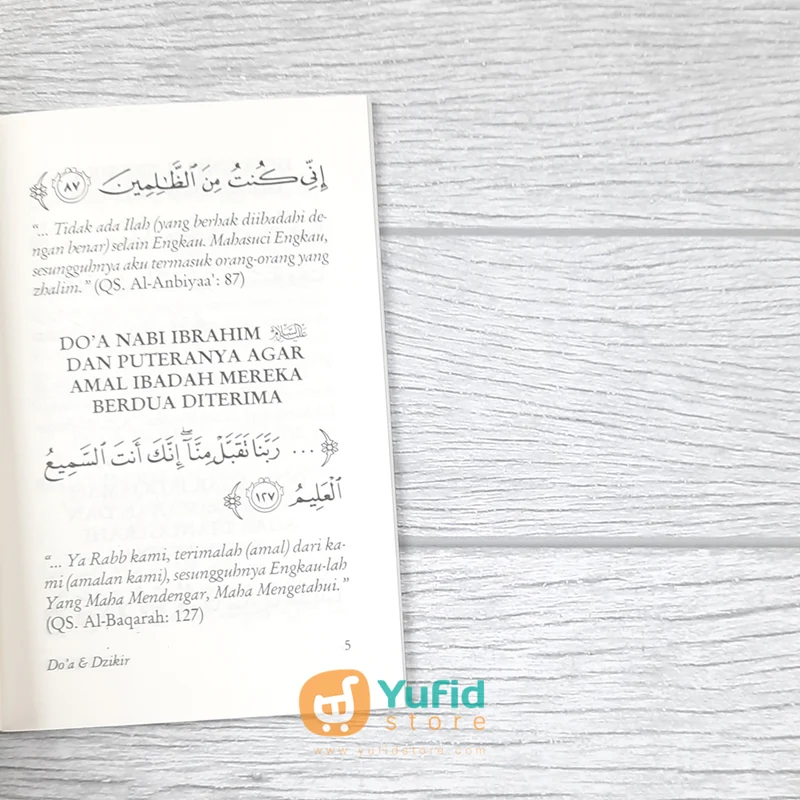 إِنِّي كُنتُ مِنَ ٱلظَّٰلِمِينَ ٨٧
“... Tidak ada Ilah (yang berhak diibadahi de-
ngan benar) selain Engkau. Mahasuci Engkau,
sesungguhnya aku termasuk orang-orang yang
zhalim.” (QS. Al-Anbiyaa': 87)
DO’A NABI IBRAHIM عليه السلام
DAN PUTERANYA AGAR
AMAL IBADAH MEREKA
BERDUA DITERIMA
... رَبَّنَا تَقَبَّلْ مِنَّآ ۖ إِنَّكَ أَنتَ ٱلسَّمِيعُ
ٱلْعَلِيمُ ١٢٧
“... Ya Rabb kami, terimalah (amal) dari ka-
mi (amalan kami), sesungguhnya Engkau-lah
Yang Maha Mendengar, Maha Mengetahui.”
(QS. Al-Baqarah: 127)
5
Do’a & Dzikir
Yufid
store
www.yufidstore.com